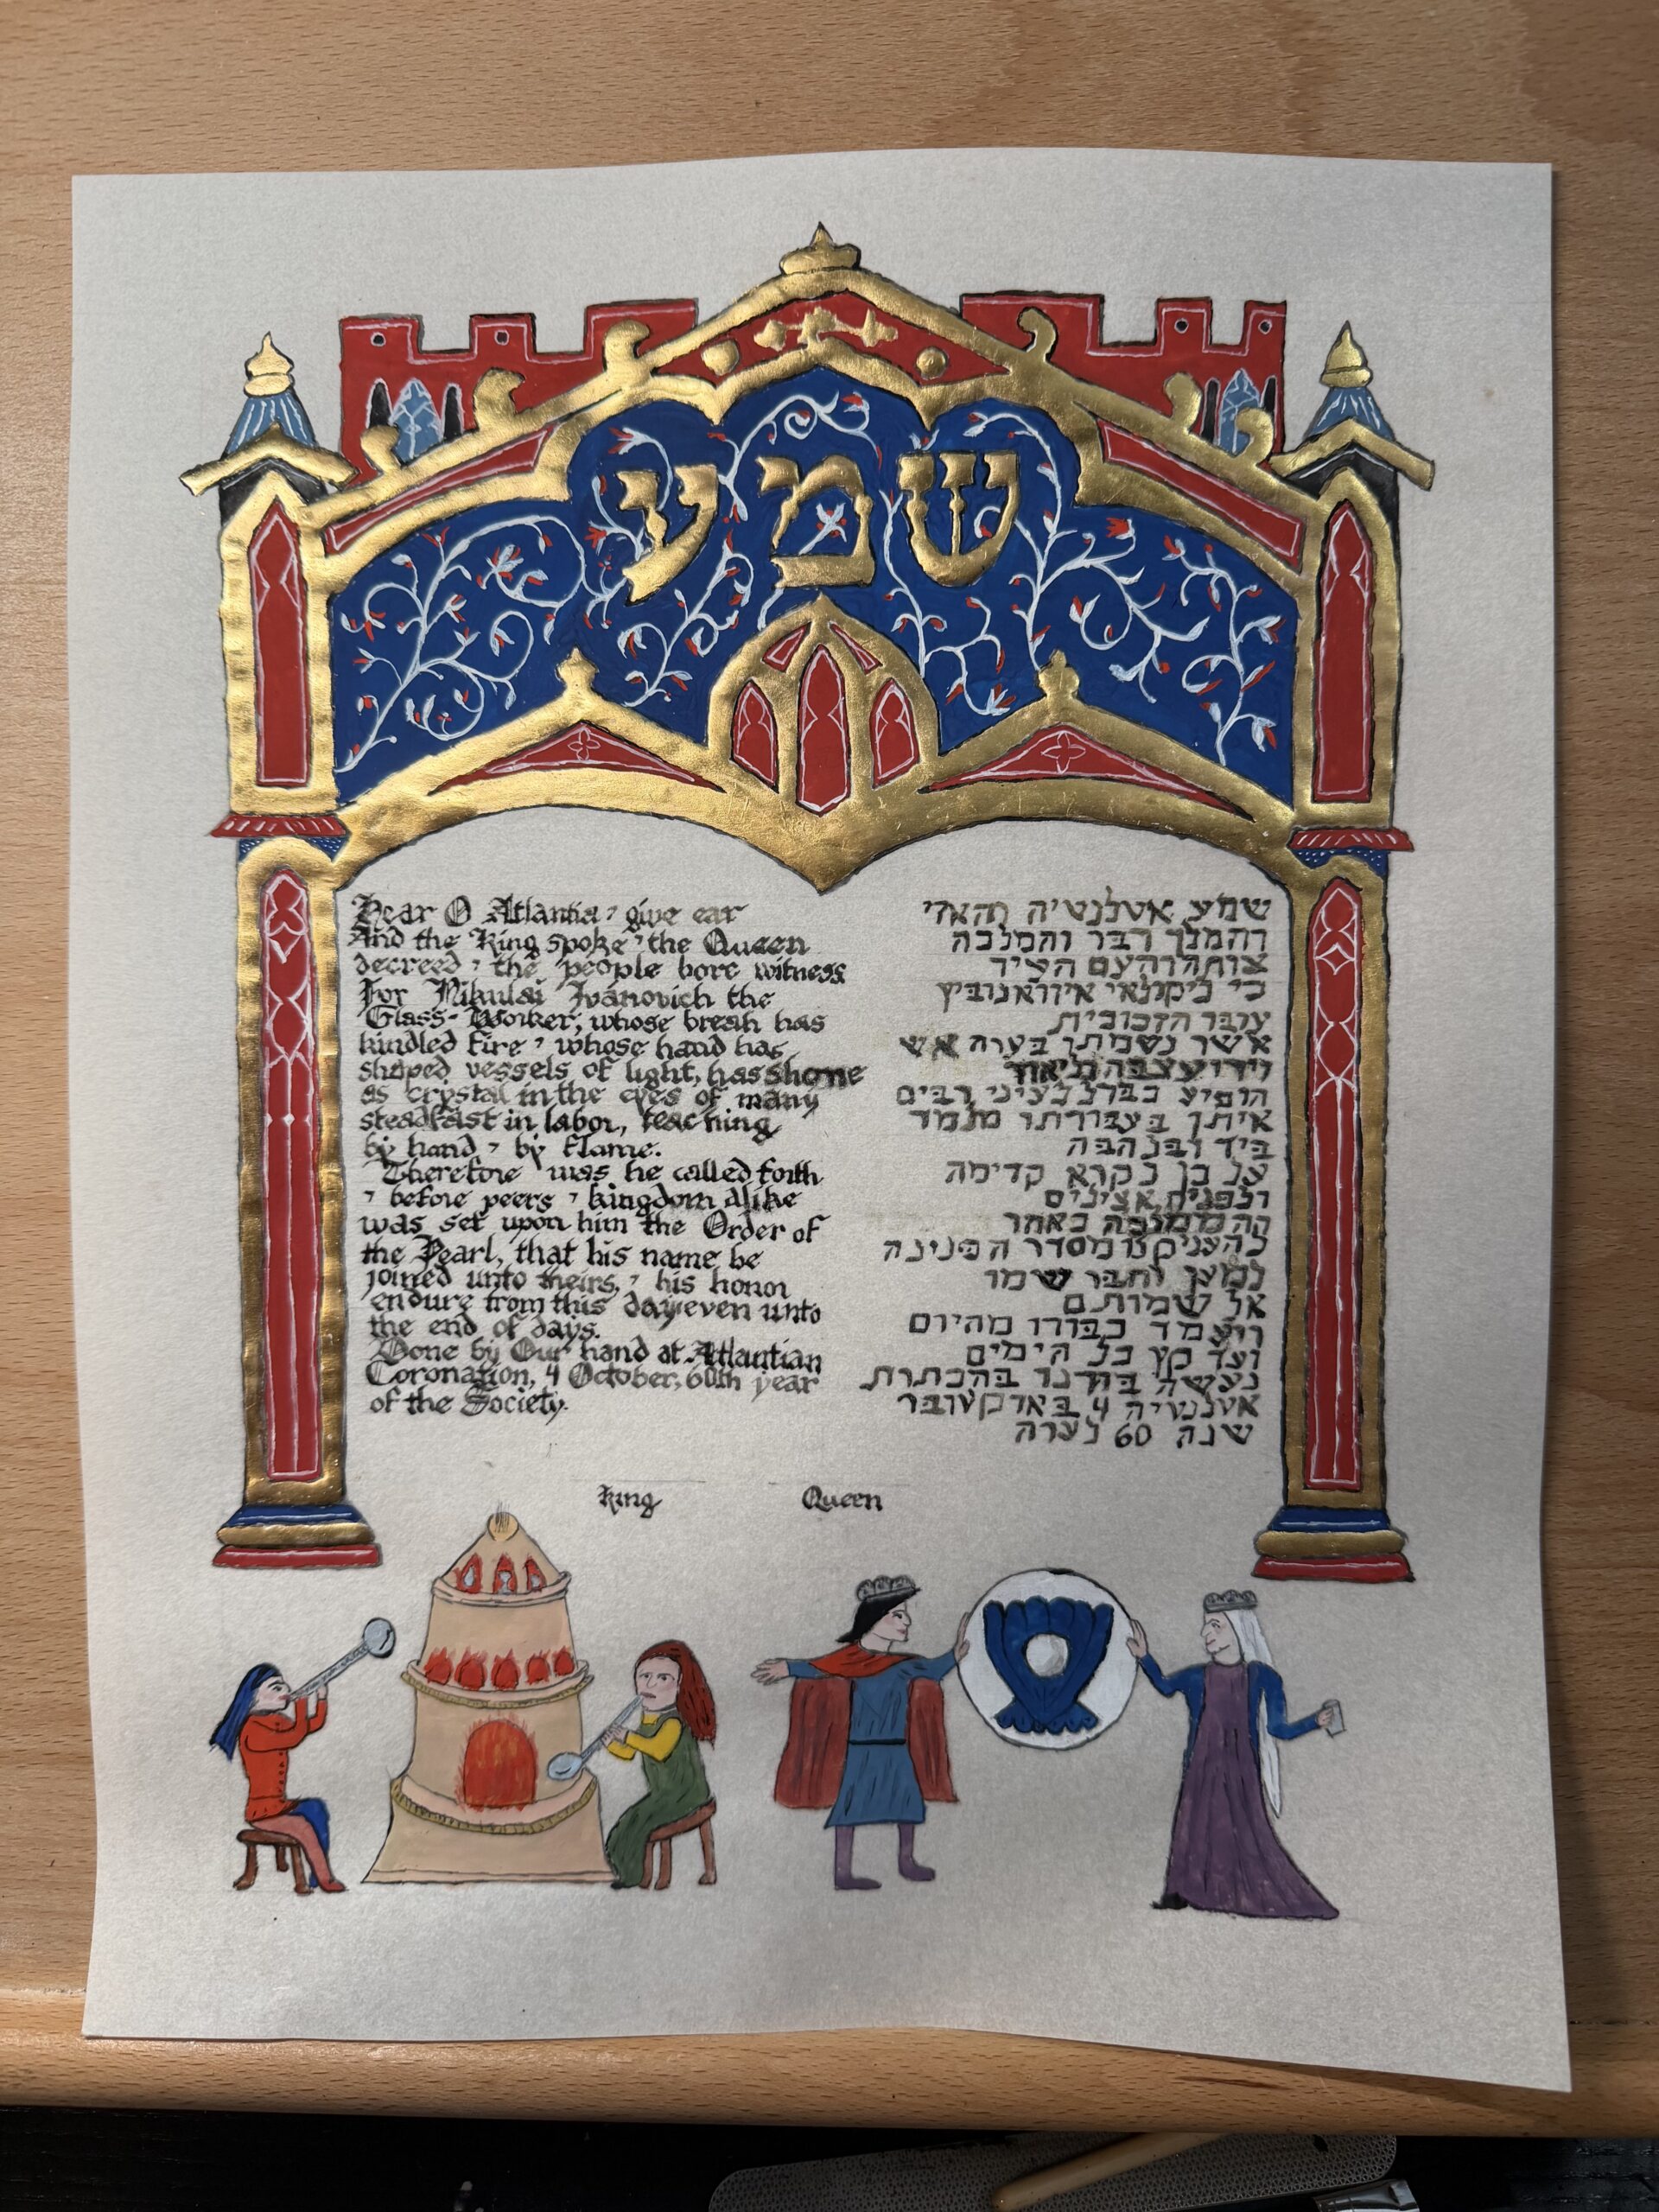 שמע
Hear O Atlantia, give ear
And the King spoke, the Queen
decreed, the people bore witness
For Nikulai Ivanovich the
Glass-Worker, whose breath has
kindled fire, whose hand has
shaped vessels of light, has shone
as crystal in the eyes of many
steadfast in labor, teaching
by hand, by flame.
Therefore was he called forth
, before peers, kingdom alike
was set upon him the Order of
the Pearl, that his name be
joined unto theirs, his honor
endure from this day even unto
the end of days.
Done by Our hand at Atlantian
Coronation, 4 October, 60th year
of the Society.
שמע אטלנטיה
והמלך דבר והמלכה
העיד
כי ניקולאי
עובד הזכוכית
אשר נשמתו בערה אש
הופיע לעיני רבים
איתן בעבודתו מלמד
ביד ובלהבה
על כן נקרא קדימה
כאחד
מסדר הפנינה
למען יחבר שמו
אל שמותם
ויעמד כבודו מהיום
ועד קץ כל הימים
נעשה בידנו בהכתרת
אטלנטיה 4
שנה 60 לערה
King Queen